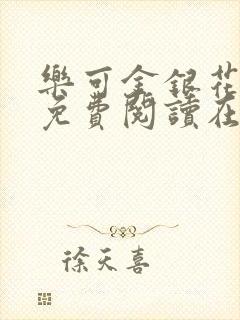 樂可金銀花
免費閱讀在
徐天喜